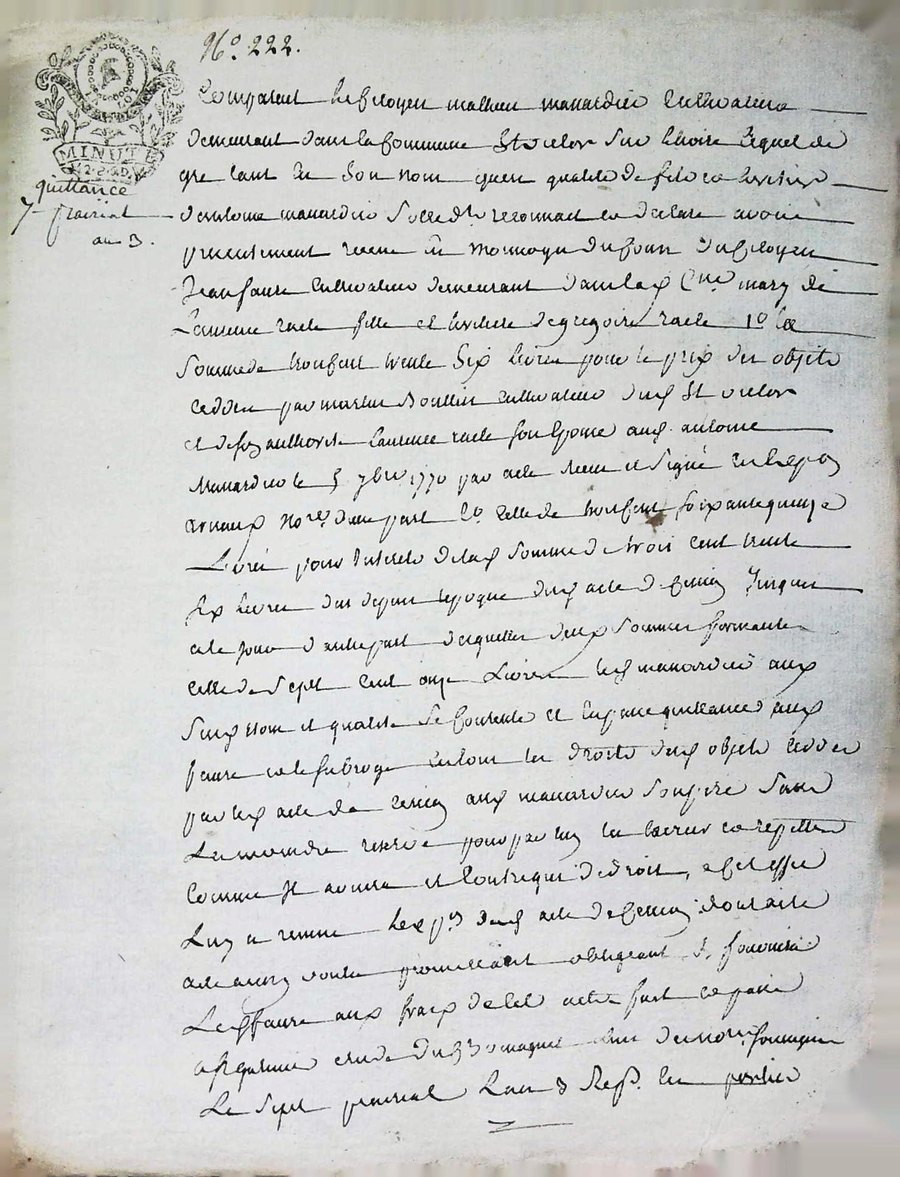 No. 222.
LA LOI
MINUTE
quittance
7 prairial
an 3.
Comparent le Citoyen mathieu manardier Cultivateur
demeurant dans la Commune St victor sur Loire lequel de
gre tant en Son nom quen qualité de fils et heritier
dantoine manardier Solledte reconnait et declare avoir
presentement receu en du Citoyen
Jean faure Cultivateur demeurant dans lad Cne mary de
Laurence racle fille et heritiere de gregoire racle 1o la
Somme de troiscent trente Six livres pour le prix des objets
ceddés par martin Cultivateur dud St victor
et de son authorité Laurence racle son Epouse aud antoine
Manardier le 5 7bre 1770 par acte receu et Signé
Nore dune part 2o celle de troiscent soixante quinze
Livres pour interets de lad Somme de trois cent trente
six livres dus depuis lepoque dud acte de Cession Jusques
a ce jour d'autre part desquelles deux Sommes formant
celle de Sept cent onze Livres led manardier aux
Susd nom et qualité Se Contente et en passe quittance aud
faure et le subroge en tous les droits dud objets ceddés
par led acte de Cession aud manardier Son pere Sans
La moindre reserve pour par luy les exercer et repeter
Comme Il avisera et Contre qui de droit, a Cet effet
Luy a remis dud acte de Cession
acte ainsy voulu promettant obligeant Se
Led faure aux fraix de Cet acte fait et passé
etude du
Le Sept prairial Lan 3 Rep.